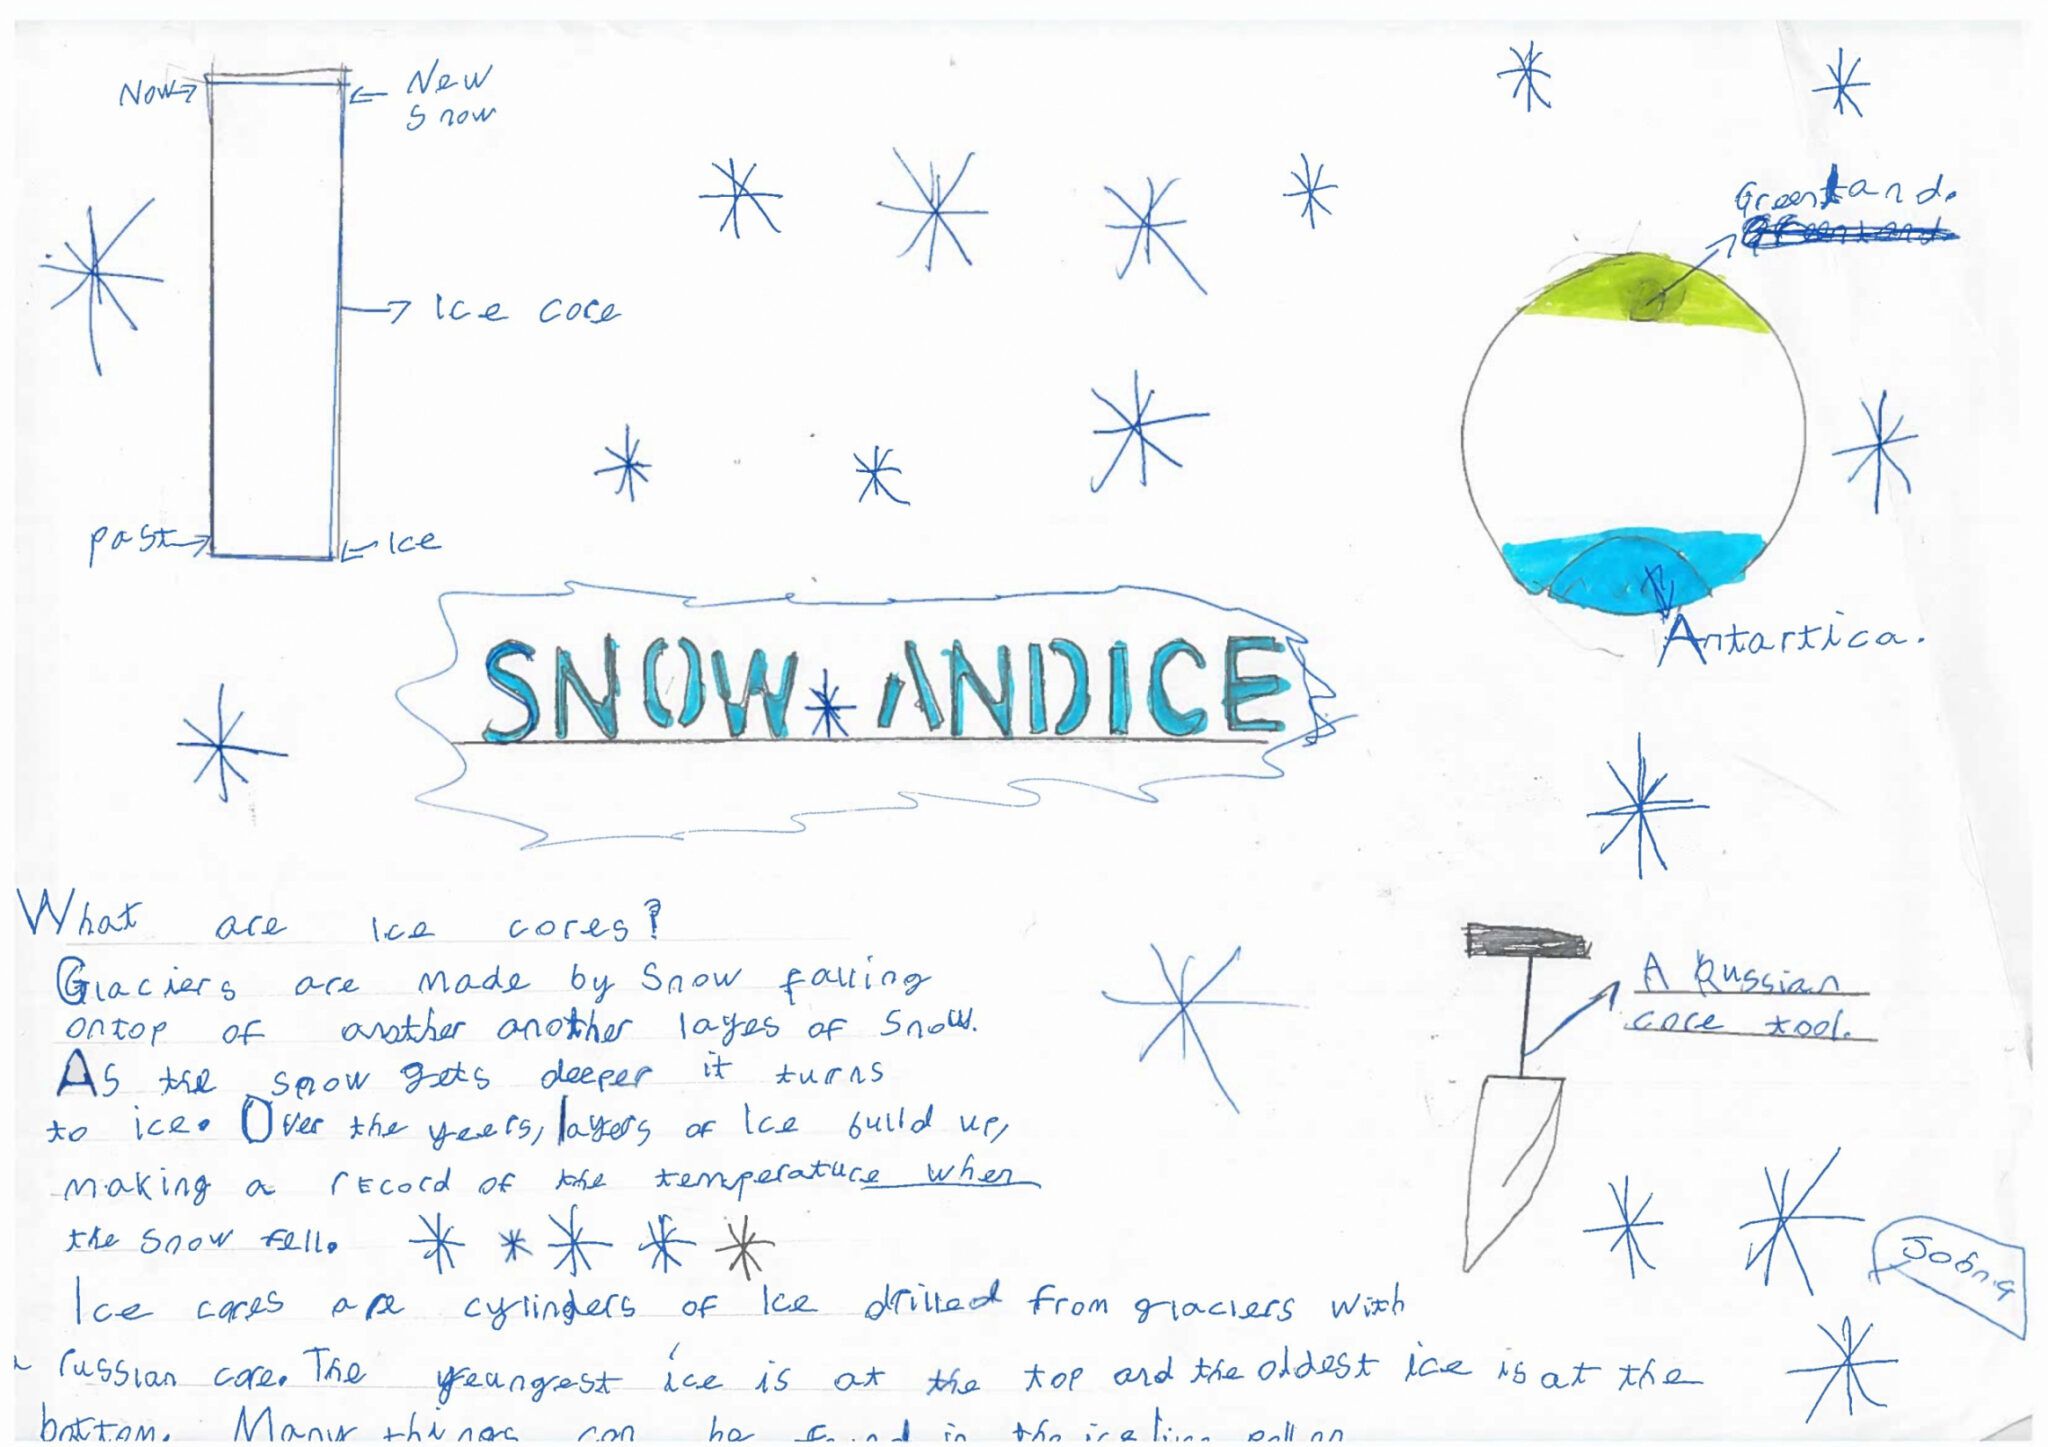 Now
New
Snow
Greenland.
Ice core
past
Ice
Antartica.
SNOW AND ICE
What are Ice cores?
Glaciers are made by Snow falling
ontop of another another layes of Snow.
As the snow gets deeper it turns
to ice. Over the yeers, layers of Ice build up,
making a record of the temperature when
the Snow fell.
A Russian
core tool.
Ice cores are cylinders of Ice drilled from glaciers with
a russian core. The yeungest ice is at the top and the oldest ice is at the
bottom. Many things can be found in the ice like pollen